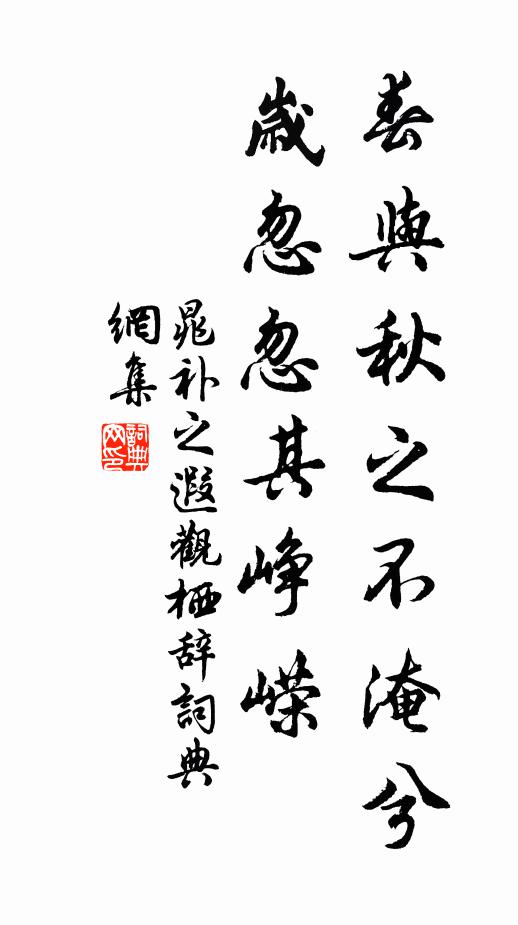 春與秋之不淹兮
歲忽忽其崢嶸
晁补之遐觀栖辞詞典
網集
詞典網印